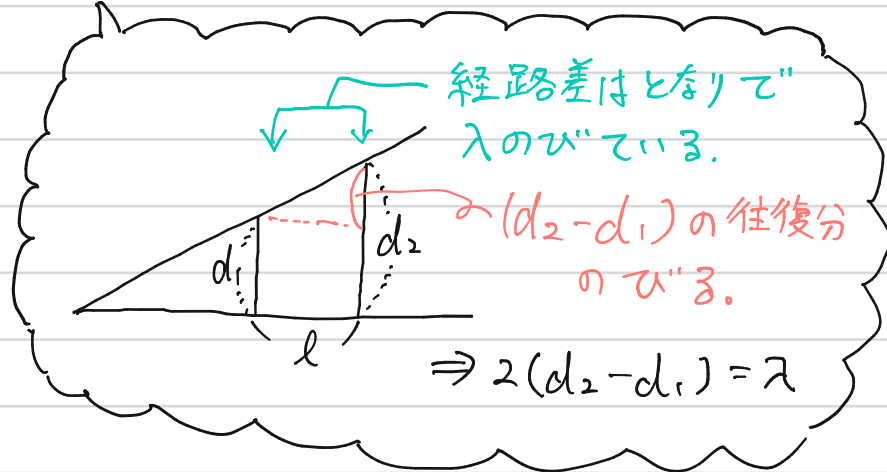 経路差はとなりで
λのびている.
(d₂-d₁)の往復分
のびる.
d₁
d₂
l
⇒ 2(d₂-d₁)=λ